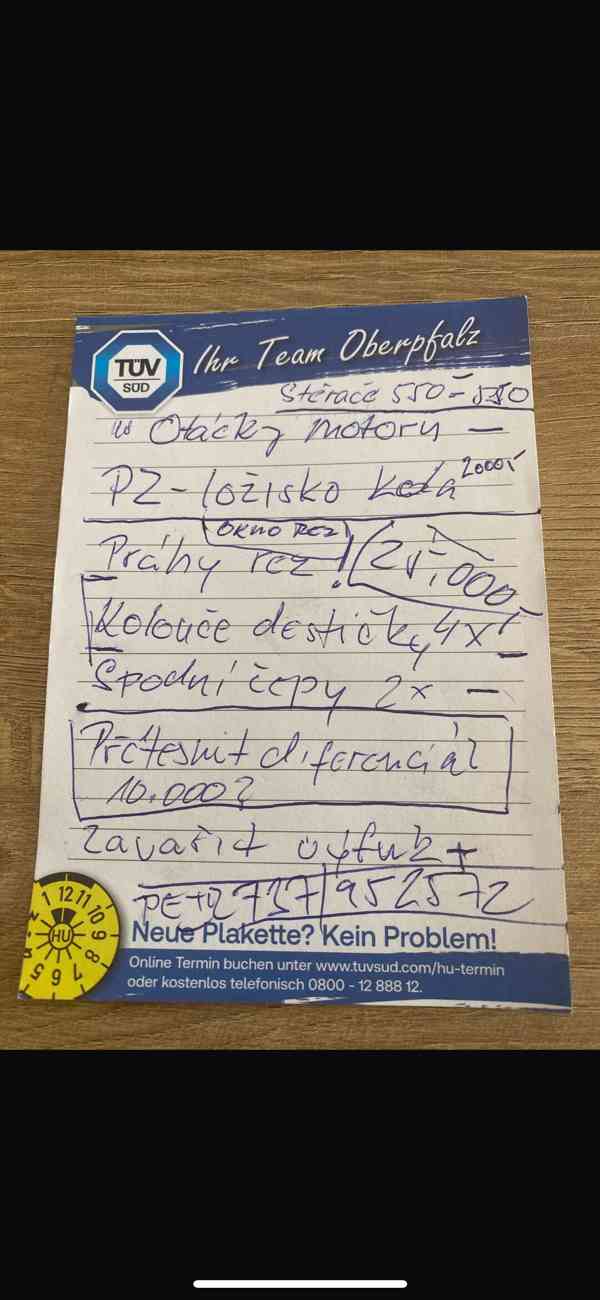 TÜV
SÜD
Ihr Team Oberpfalz
Stěrače 550 -
Otáčky motoru —
PZ - ložisko kola 2000,-
OKNO REZ
Práhy rez! 25.000,-
Kolouče destičky 4x —
Spodní čepy 2x —
Přetesnit diferenciál
10.000?
Zavařit výfuk +
PETR 737 952572
Neue Plakette? Kein Problem!
Online Termin buchen unter www.tuvsud.com/hu-termin
oder kostenlos telefonisch 0800 - 12 888 12.
1 12 11 10 9 8 7 6 5
HU